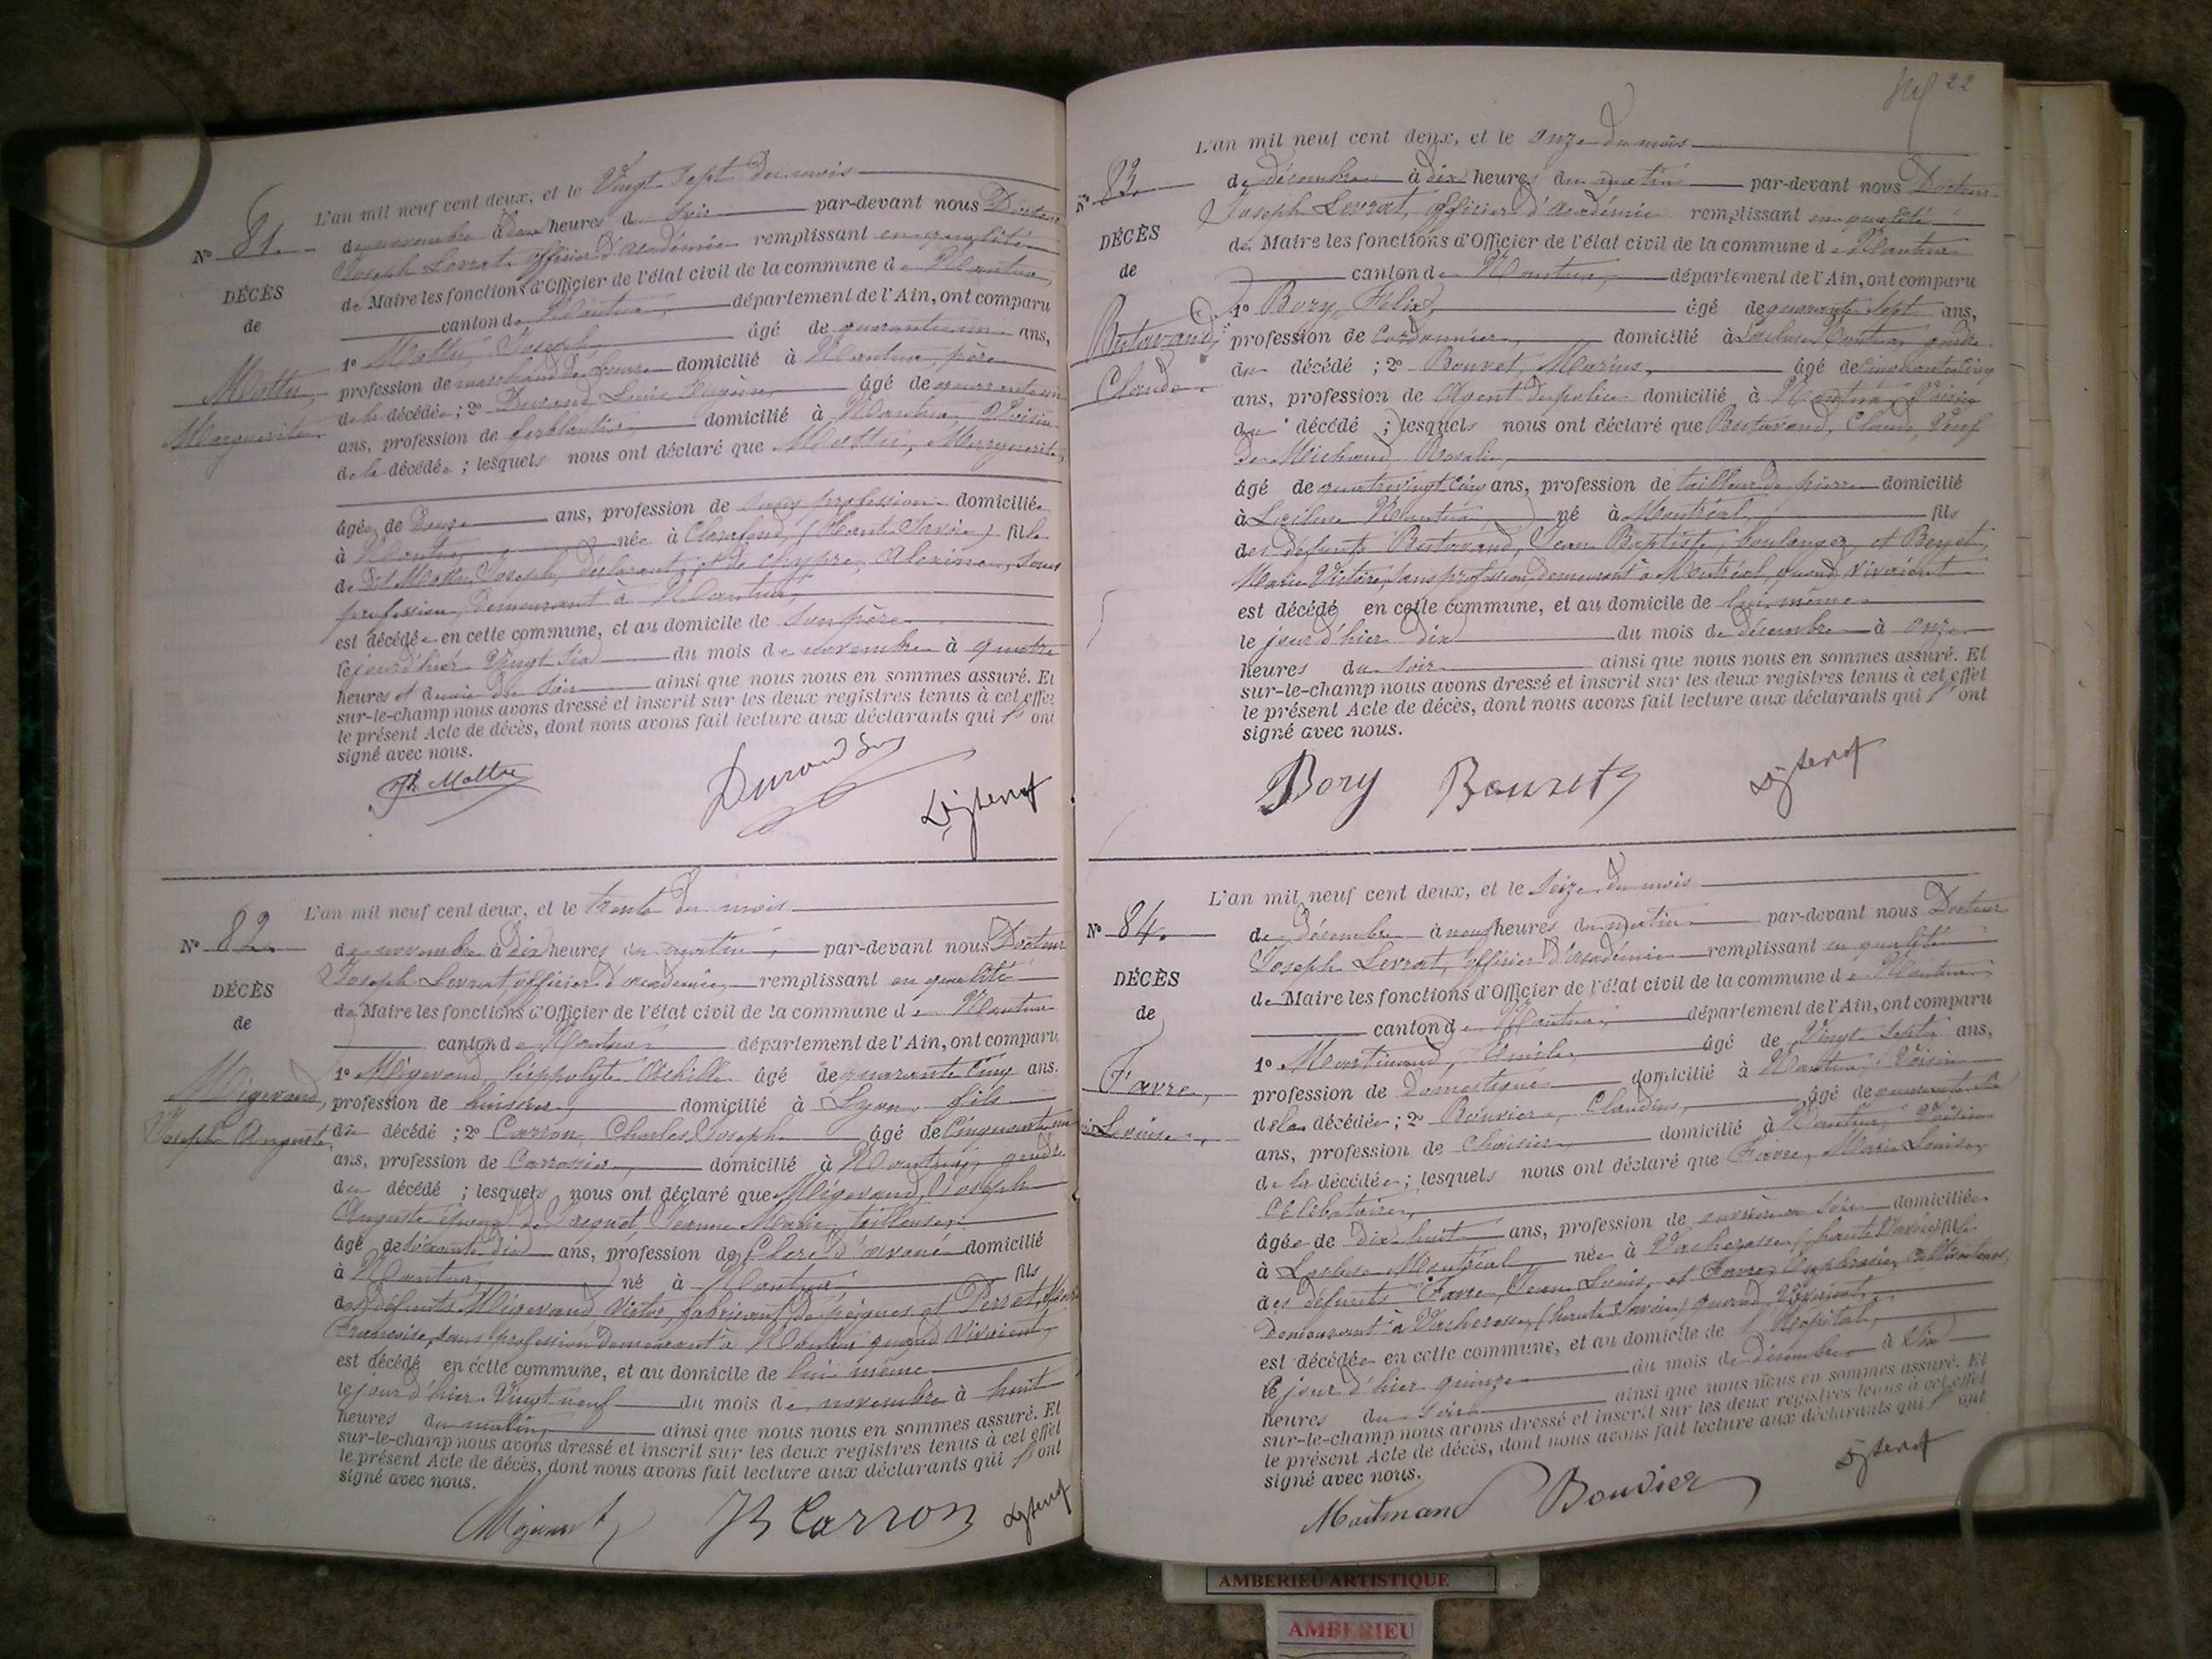 L'an mil neuf cent deux, et le Vingt Sept du mois
N° 81.
de novembre à deux heures du Soir par-devant nous Docteur
Joseph Levrat, officier d'académie remplissant en qualité
DÉCÈS
de Maire les fonctions d'Officier de l'état civil de la commune de Nantua,
de
canton de Nantua, département de l'Ain, ont comparu
1° Joseph, âgé de quarante un ans,
profession de domicilié à Nantua, père
Marguerite
de la décédée ; 2° Durand, Louis âgé de
ans, profession de ferblantier, domicilié à Nantua, Voisin
de la décédée ; lesquels nous ont déclaré que Marguerite,
âgée de ans, profession de sans profession domiciliée
à Nantua, née à (Haute Savoie) fille
de dit Joseph, déclarant, et de sans
profession, demeurant à Nantua,
est décédée en cette commune, et au domicile de son père
le jour d'hier Vingt Six du mois de novembre à quatre
heures et demie du Soir ainsi que nous nous en sommes assuré. Et
sur-le-champ nous avons dressé et inscrit sur les deux registres tenus à cet effet
le présent Acte de décès, dont nous avons fait lecture aux déclarants qui l' ont
signé avec nous.
Durand
L'an mil neuf cent deux, et le trente du mois
N° 82.
de novembre à dix heures du matin, par-devant nous Docteur
Joseph Levrat, officier d'académie, remplissant en qualité
DÉCÈS
de Maire les fonctions d'Officier de l'état civil de la commune de Nantua
de
canton de Nantua département de l'Ain, ont comparu
1° Mégevand, Hippolyte Achille âgé de quarante cinq ans.
Mégevand,
profession de huissier, domicilié à Lyon, fils
Joseph Auguste,
du décédé ; 2° Carron, Charles Joseph âgé de Cinquante
ans, profession de Carrossier, domicilié à Nantua, gendre
du décédé ; lesquels nous ont déclaré que Mégevand, Joseph
Auguste époux de Jeanne Marie, tailleuse,
âgé de soixante dix ans, profession de Clerc d'avoué domicilié
à Nantua, né à Nantua fils
des défunts Mégevand, Victor, fabricant de peignes et Perret,
Françoise, sans profession demeurant à Nantua quand vivaient,
est décédé en cette commune, et au domicile de lui même
le jour d'hier Vingt neuf du mois de novembre à huit
heures du matin, ainsi que nous nous en sommes assuré. Et
sur-le-champ nous avons dressé et inscrit sur les deux registres tenus à cet effet
le présent Acte de décès, dont nous avons fait lecture aux déclarants qui l' ont
signé avec nous.
Carron
22
L'an mil neuf cent deux, et le onze du mois
N° 83.
de décembre à dix heures du matin par-devant nous Docteur
Joseph Levrat, officier d'académie remplissant en qualité
DÉCÈS
de Maire les fonctions d'Officier de l'état civil de la commune de Nantua
de
canton de Nantua, département de l'Ain, ont comparu
1° Bory, Félix, âgé de quarante Sept ans,
Butavand,
profession de Cordonnier, domicilié à Nantua, gendre
Claude
du décédé ; 2° Bouvet, Marius, âgé de Cinquante cinq
ans, profession de Agent de police domicilié à Nantua, Voisin
du décédé ; lesquels nous ont déclaré que Butavand, Claude, Veuf
de Michaud, Rosalie,
âgé de quatrevingt cinq ans, profession de tailleur de pierre domicilié
à Nantua né à Montréal, fils
des défunts Butavand, Jean Baptiste, boulanger, et
Marie Victoire, sans profession, demeurant à Montréal, quand vivaient
est décédé en cette commune, et au domicile de lui même
le jour d'hier dix du mois de décembre à onze
heures du soir ainsi que nous nous en sommes assuré. Et
sur-le-champ nous avons dressé et inscrit sur les deux registres tenus à cet effet
le présent Acte de décès, dont nous avons fait lecture aux déclarants qui l' ont
signé avec nous.
Bory
L'an mil neuf cent deux, et le Seize du mois
N° 84.
de décembre à neuf heures du matin par-devant nous Docteur
Joseph Levrat, officier d'académie remplissant en qualité
DÉCÈS
de Maire les fonctions d'Officier de l'état civil de la commune de Nantua
de
canton de Nantua, département de l'Ain, ont comparu
1° Martinand, âgé de Vingt Sept ans,
Favre,
profession de Domestique domicilié à Nantua, Voisin
Louise,
de la décédée ; 2° Bouvier, Claudius, âgé de
ans, profession de Chaisier, domicilié à Nantua, Voisin
de la décédée ; lesquels nous ont déclaré que Favre, Marie Louise,
Célibataire,
âgée de dix huit ans, profession de ouvrière en soie domiciliée
à Montréal née à Vacheresse (haute Savoie) fille
des défunts Favre, Jean Louis, et Favre, Euphrasie, Cultivateurs,
demeurant à Vacheresse, (haute Savoie) quand Vivaient,
est décédée en cette commune, et au domicile de l'hôpital,
le jour d'hier quinze du mois de décembre à
heures du soir ainsi que nous nous en sommes assuré. Et
sur-le-champ nous avons dressé et inscrit sur les deux registres tenus à cet effet
le présent Acte de décès, dont nous avons fait lecture aux déclarants qui l' ont
signé avec nous.
Bouvier
AMBERIEU ARTISTIQUE
AMBERIEU